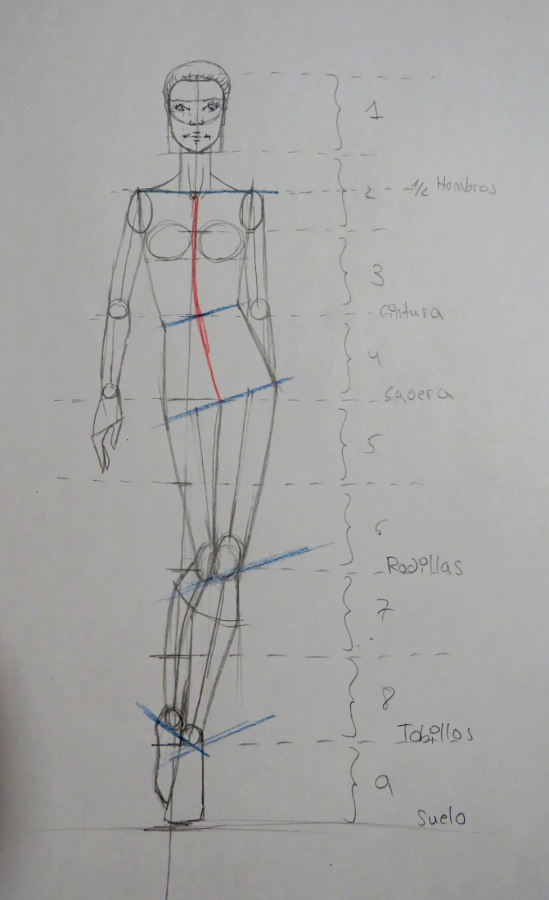 1
2 - 1/2 Hombros
3
Cintura
4
Cadera
5
6
Rodillas
7
8
Tobillos
9
Suelo